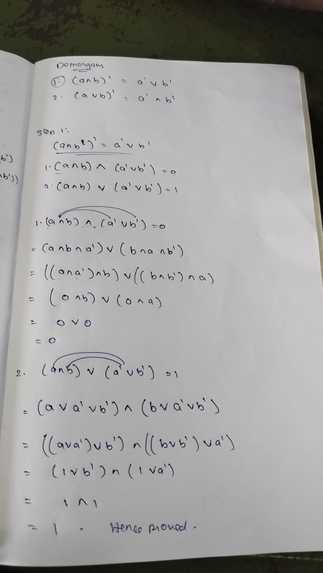 Demorgans
1. (a∧b)' = a' ∨ b'
2. (a∨b)' = a' ∧ b'
(a∧b)' = a' ∨ b'
1. (a∧b) ∧ (a' ∨ b') = 0
2. (a∧b) ∨ (a' ∨ b') = 1
1. (a∧b) ∧ (a' ∨ b') = 0
= (a∧b∧a') ∨ (b∧a∧b')
= ((a∧a')∧b) ∨ ((b∧b')∧a)
= (0∧b) ∨ (0∧a)
= 0 ∨ 0
= 0
2. (a∧b) ∨ (a' ∨ b') = 1
= (a∨a'∨b') ∧ (b∨a'∨b')
= ((a∨a')∨b') ∧ ((b∨b')∨a')
= (1∨b') ∧ (1∨a')
= 1 ∧ 1
= 1 . Hence proved.
b')
∧b'))